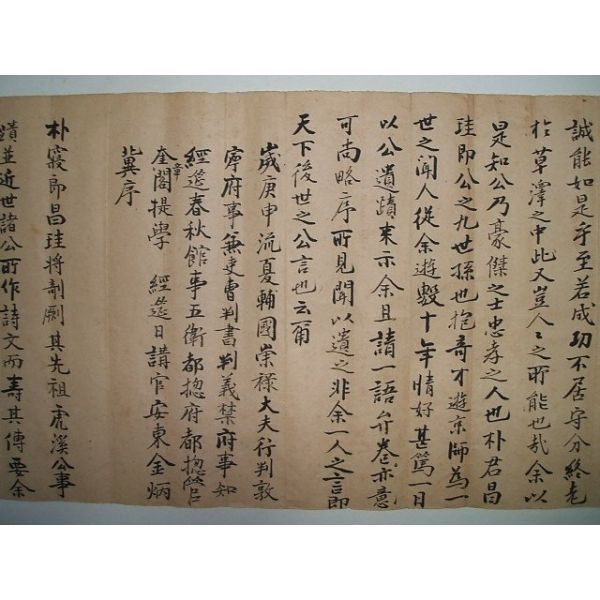 誠能如是乎至若成功不居守分終老
於草澤之中此又豈人人之所能也哉余以
是知公乃豪傑之士忠孝之人也朴君昌
珪即公之九世孫也抱奇才遊京師為一
世之聞人從余遊數十年情好甚篤一日
以公遺蹟来示余且請一語弁卷亦意
可尚略序所見聞以遺之非余一人之言即
天下後世之公言也云爾
歲庚申流夏輔國崇祿大夫行判敦
寧府事兼吏曹判書判義禁府事知
經筵春秋館事五衛都摠府都摠管
奎章閣提學 經筵日講官安東金炳
冀序
朴寢郎昌珪將剞劂其先祖虎溪公事
蹟並近世諸公所作詩文而壽其傳要余